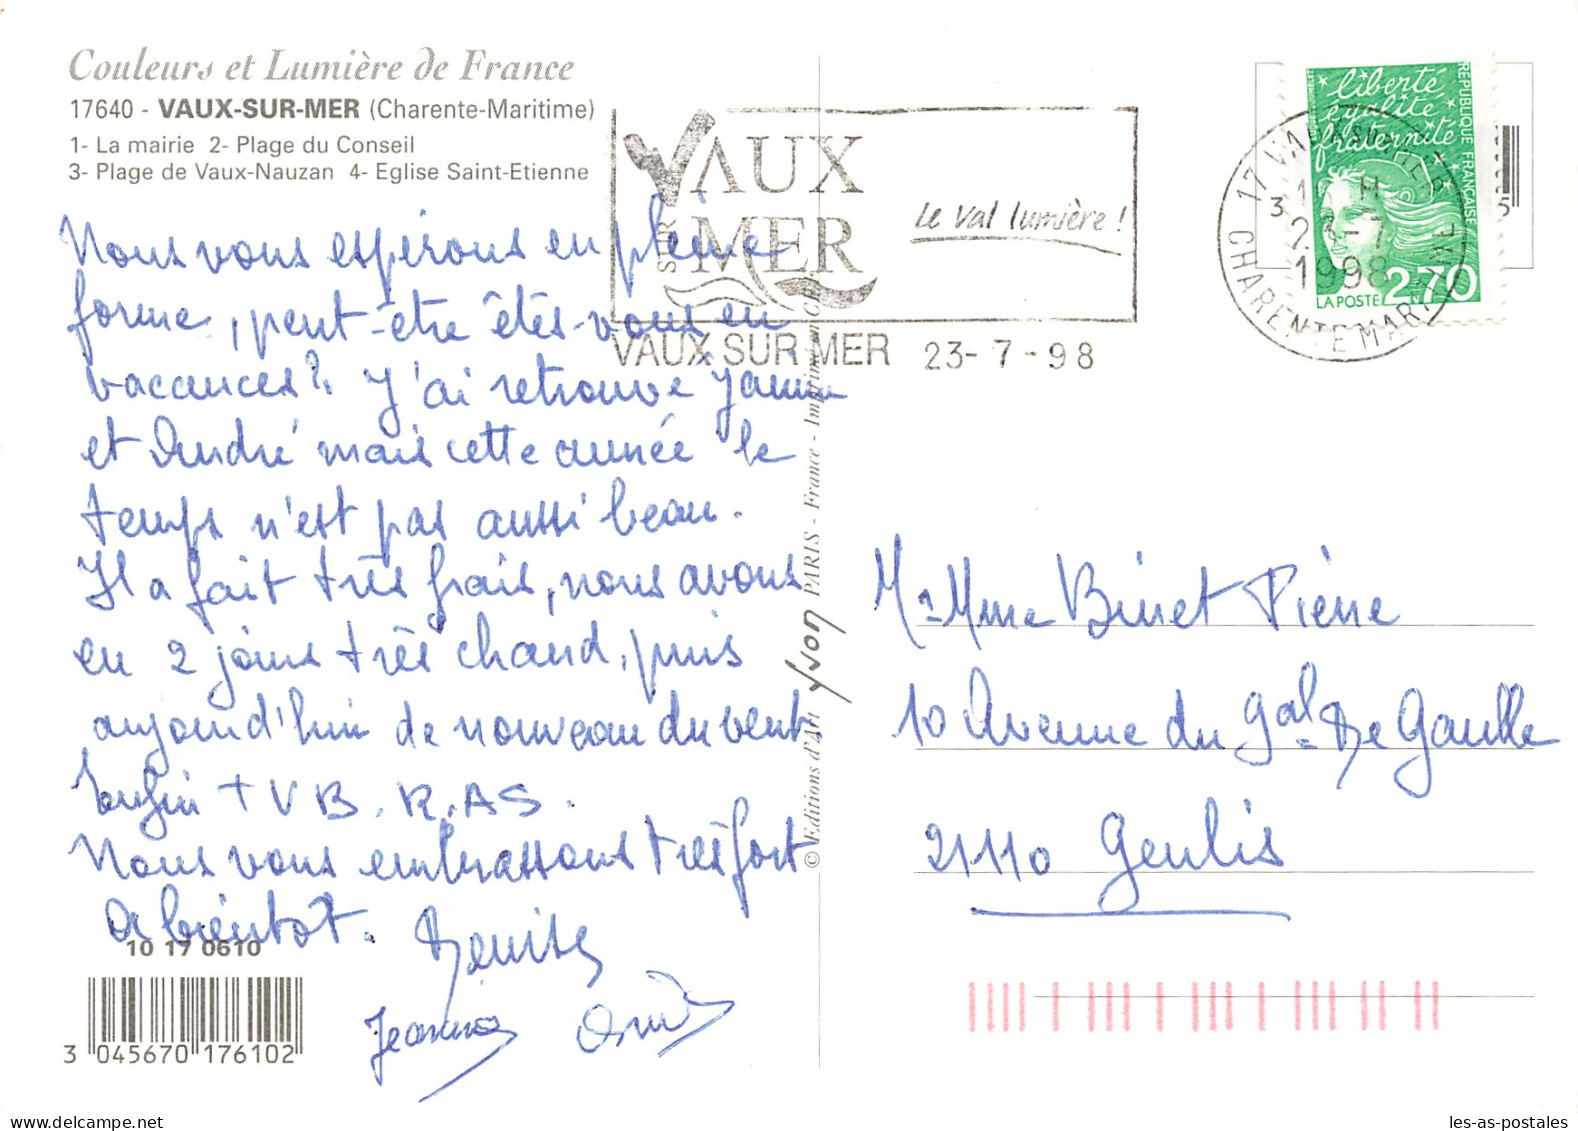 Couleurs et Lumière de France
17640 - VAUX-SUR-MER (Charente-Maritime)
1- La mairie 2- Plage du Conseil
3- Plage de Vaux-Nauzan 4- Eglise Saint-Etienne
Nous vous espérons en pleine
forme, peut-être êtes-vous en
vacances? J'ai retrouvé
et André mais cette année le
temps n'est pas aussi beau.
Il a fait très frais, nous avons
eu 2 jours très chaud, puis
aujourd'hui de nouveau du vent
Enfin TVB. R.AS.
Nous vous embrassons très fort
A bientôt. Denise
Jeannine André
10 17 0610
3 045670 176102
VAUX
SUR
MER
Le Val lumière !
VAUX SUR MER 23-7-98
liberté
égalité
fraternité
REPUBLIQUE FRANÇAISE
LA POSTE 2,70
17 VAUX SUR MER
H
23-7
1998
CHARENTE MARITIME
© Editions d'Art Yvon PARIS - France - Imprimé en CE
Mr Mme Binet Pierre
10 Avenue du Gal De Gaulle
21110 Genlis
les-as-postales
Delcampe.net